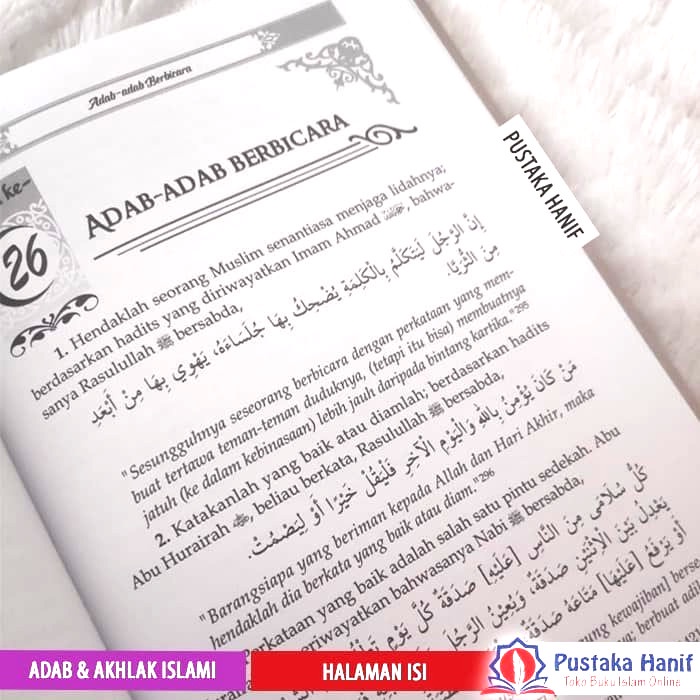 Adab-adab Berbicara
ke-
26
ADAB-ADAB BERBICARA
1. Hendaklah seorang Muslim senantiasa menjaga lidahnya;
berdasarkan hadits yang diriwayatkan Imam Ahmad, bahwa-
sanya Rasulullah ﷺ bersabda,
إِنَّ الرَّجُلَ لَيَتَكَلَّمُ بِالْكَلِمَةِ يُضْحِكُ بِهَا جُلَسَاءَهُ، يَهْوِي بِهَا مِنْ أَبْعَدِ
مِنَ الثُّرَيَّا.
"Sesungguhnya seseorang berbicara dengan perkataan yang mem-
buat tertawa teman-teman duduknya, (tetapi itu bisa) membuatnya
jatuh (ke dalam kebinasaan) lebih jauh daripada bintang kartika."295
2. Katakanlah yang baik atau diamlah; berdasarkan hadits
Abu Hurairah, beliau berkata, Rasulullah ﷺ bersabda,
مَنْ كَانَ يُؤْمِنُ بِاللهِ وَالْيَوْمِ الْآخِرِ فَلْيَقُلْ خَيْرًا أَوْ لِيَصْمُتْ.
"Barangsiapa yang beriman kepada Allah dan Hari Akhir, maka
hendaklah dia berkata yang baik atau diam."296
Perkataan yang baik adalah salah satu pintu sedekah. Abu
meriwayatkan bahwasanya Nabi ﷺ bersabda,
كُلُّ سُلَامَى مِنَ النَّاسِ [عَلَيْهِ] صَدَقَةٌ كُلَّ يَوْمٍ
يَعْدِلُ بَيْنَ الْاِثْنَيْنِ صَدَقَةٌ، وَيُعِيْنُ الرَّجُلَ
أَوْ يَرْفَعُ [عَلَيْهَا] مَتَاعَهُ صَدَقَةٌ
kewajiban] berse
berbuat adil
PUSTAKA HANIF
ADAB & AKHLAK ISLAMI
HALAMAN ISI
Pustaka Hanif
Toko Buku Islam Online